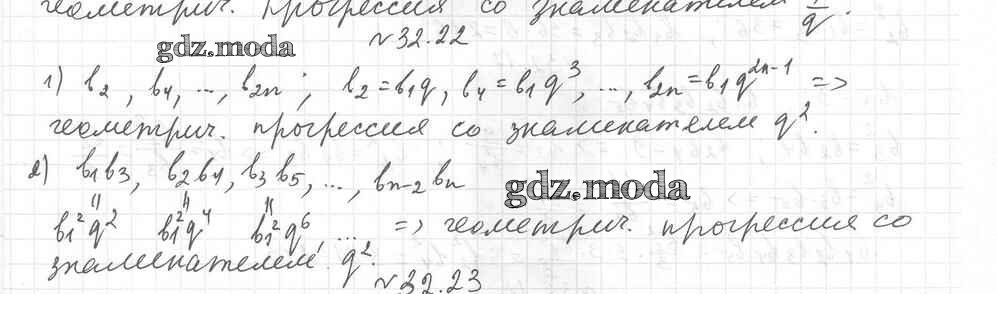 геометрич. прогрессия со знаменателем 1/q.
№32.22
gdz.moda
1) b₂, b₄, ..., b₂ₙ ; b₂ = b₁q, b₄ = b₁q³, ..., b₂ₙ = b₁q²ⁿ⁻¹ =>
геометрич. прогрессия со знаменателем q².
2) b₁b₃, b₂b₄, b₃b₅, ..., bₙ₋₂bₙ
gdz.moda
b₁²q² b₁²q⁴ b₁²q⁶, ... => геометрич. прогрессия со
знаменателем q².
№32.23